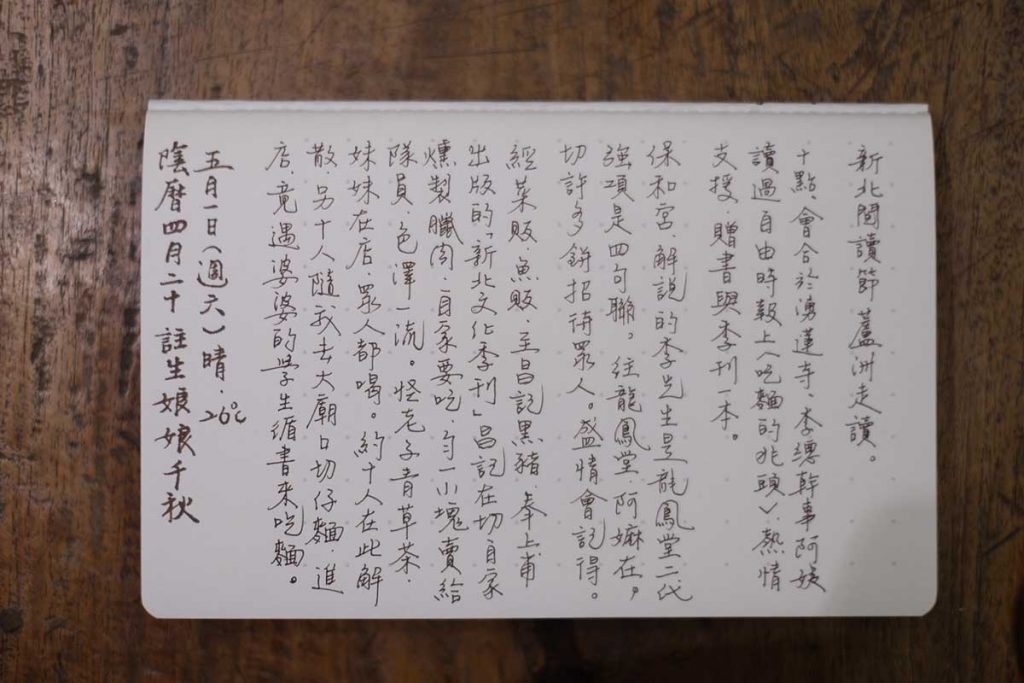 新北閱讀節蘆洲走讀。
十點、會合於湧蓮寺、李總幹事阿娥
讀過自由時報上〈吃麵的兆頭〉熱情
支援、贈書與季刊一本。
保和宮、解說的李先生是龍鳳堂二代
強項是四句聯。往龍鳳堂、阿嫲在,
切許多餅招待眾人。盛情會記得。
經菜販、魚販、至昌記黑豬、奉上甫
出版的「新北文化季刊」昌記在切自家
燻製臘肉、自家要吃、勻一小塊賣給
隊員、色澤一流。怪老子青草茶、
妹妹在店、眾人都喝。約十人在此解
散、另十人隨我去大廟口切仔麵、進
店、竟遇婆婆的學生循書來吃麵。
五月一日(週六)晴、26℃
陰曆四月二十 註生娘娘千秋